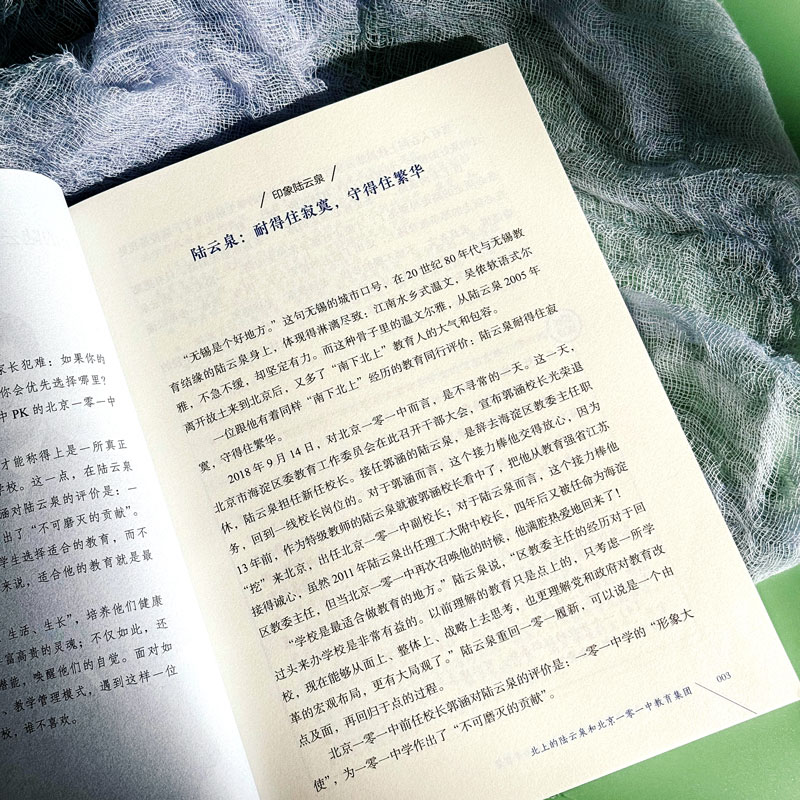 家长犯难：如果你的
你会优先选择哪里？
中 PK 的北京一零一中
才能称得上是一所真正
学校。这一点，在陆云泉
涵对陆云泉的评价是：一
出了“不可磨灭的贡献”。
学生选择适合的教育，而不
来说，适合他的教育就是最
生活、生长”，培养他们健康
富高贵的灵魂；不仅如此，还
潜能，唤醒他们的自觉。面对如
、教学管理模式，遇到这样一位
校，谁不喜欢。
印象陆云泉
陆云泉：耐得住寂寞，守得住繁华
“无锡是个好地方。”这句无锡的城市口号，在 20 世纪 80 年代与无锡教
育结缘的陆云泉身上，体现得淋漓尽致：江南水乡式温文，吴侬软语式尔
雅，不急不缓，却坚定有力。而这种骨子里的温文尔雅，从陆云泉 2005 年
离开故土来到北京后，又多了“南下北上”教育人的大气和包容。
一位跟他有着同样“南下北上”经历的教育同行评价：陆云泉耐得住寂
寞，守得住繁华。
2018 年 9 月 14 日，对北京一零一中而言，是不寻常的一天。这一天，
北京市海淀区委教育工作委员会在此召开干部大会，宣布郭涵校长光荣退
休，陆云泉担任新任校长。接任郭涵的陆云泉，是辞去海淀区教委主任职
务，回到一线校长岗位的。对于郭涵而言，这个接力棒他交得放心，因为
13 年前，作为特级教师的陆云泉就被郭涵校长看中了，把他从教育强省江苏
“挖”来北京，出任北京一零一中副校长；对于陆云泉而言，这个接力棒他
接得诚心，虽然 2011 年陆云泉出任理工大附中校长，四年后又被任命为海淀
区教委主任，但当北京一零一中再次召唤他的时候，他满腔热爱地回来了！
“学校是最适合做教育的地方。”陆云泉说，“区教委主任的经历对于回
过头来办学校是非常有益的。以前理解的教育只是点上的，只考虑一所学
校，现在能够从面上、整体上、战略上去思考，也更理解党和政府对教育改
革的宏观布局，更有大局观了。”陆云泉重回一零一履新，可以说是一个由
点及面，再回归于点的过程。
北京一零一中前任校长郭涵对陆云泉的评价是：一零一中学的“形象大
使”，为一零一中学作出了“不可磨灭的贡献”。
北上的陆云泉和北京一零一中教育集团
003